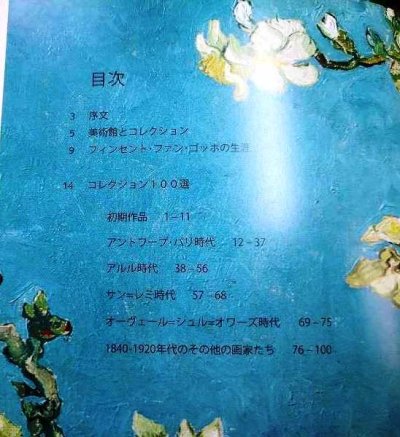 目次
3 序文
5 美術館とコレクション
9 フィンセント・ファン・ゴッホの生涯
14 コレクション100選
初期作品 1－11
アントワープ・パリ時代 12－37
アルル時代 38－56
サン=レミ時代 57－68
オーヴェール=シュル=オワーズ時代 69－75
1840-1920年代のその他の画家たち 76－100